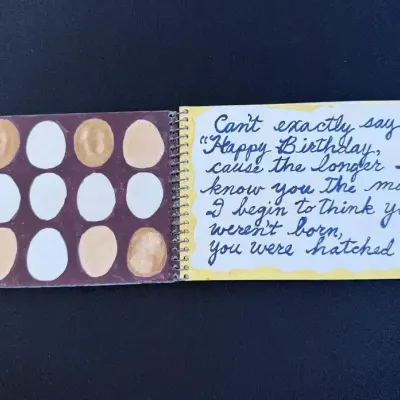 Can't exactly say
"Happy Birthday,
cause the longer
know you the
I begin to think
weren't born,
you were hatched